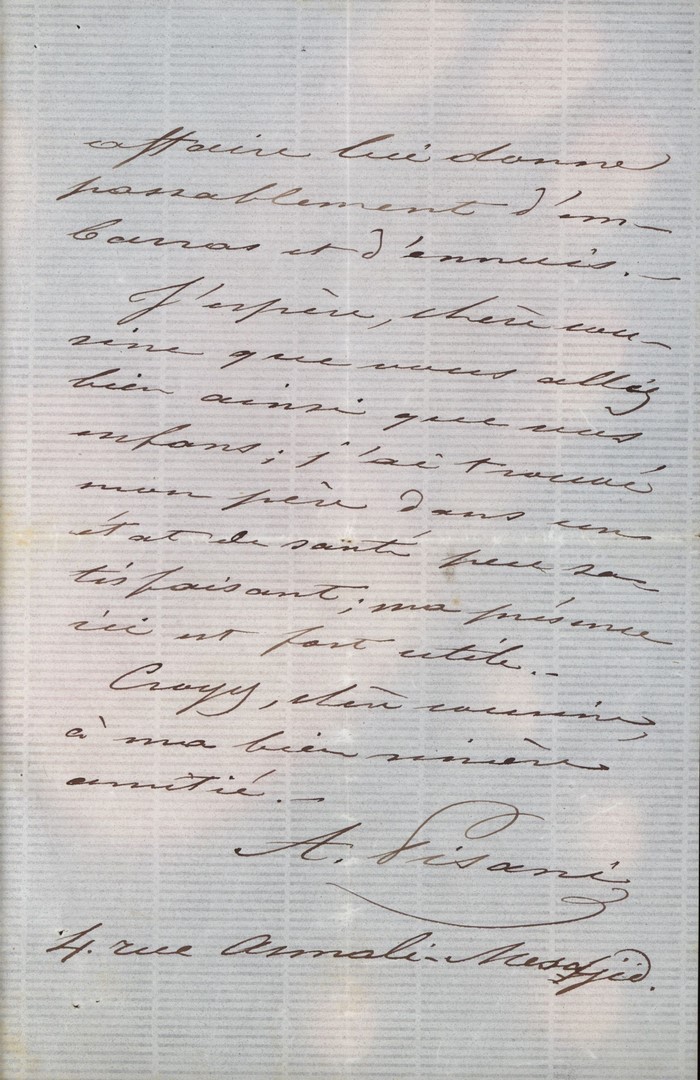 affaire lui donne
passablement d'em-
barras et d'ennuis. —
J'espère, chère cou-
sine que vous alléz
bien ainsi que vos
enfans; j'ai trouvé
mon père dans un
état de santé peu sa-
tisfaisant; ma présence
ici est fort utile. -
Croyez, chère cousine,
à ma bien sincère
amitié. —
A. Pisani
4. rue Asmali-Mesdjid.